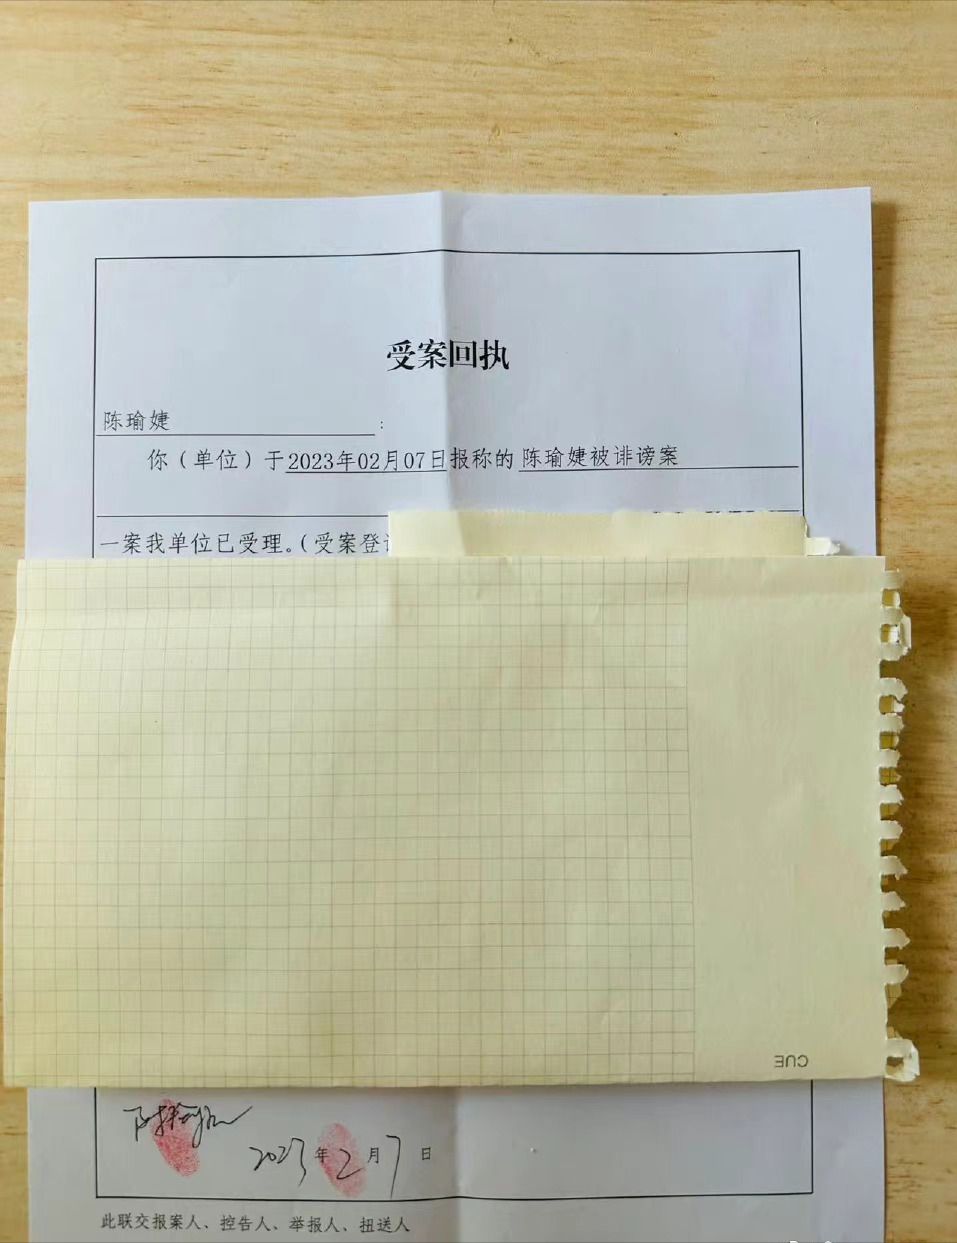 受案回执
陈瑜婕：
你（单位）于2023年02月07日报称的 陈瑜婕被诽谤案
一案我单位已受理。（受案登
CUE
陈瑜婕
2023年2月7日
此联交报案人、控告人、举报人、扭送人